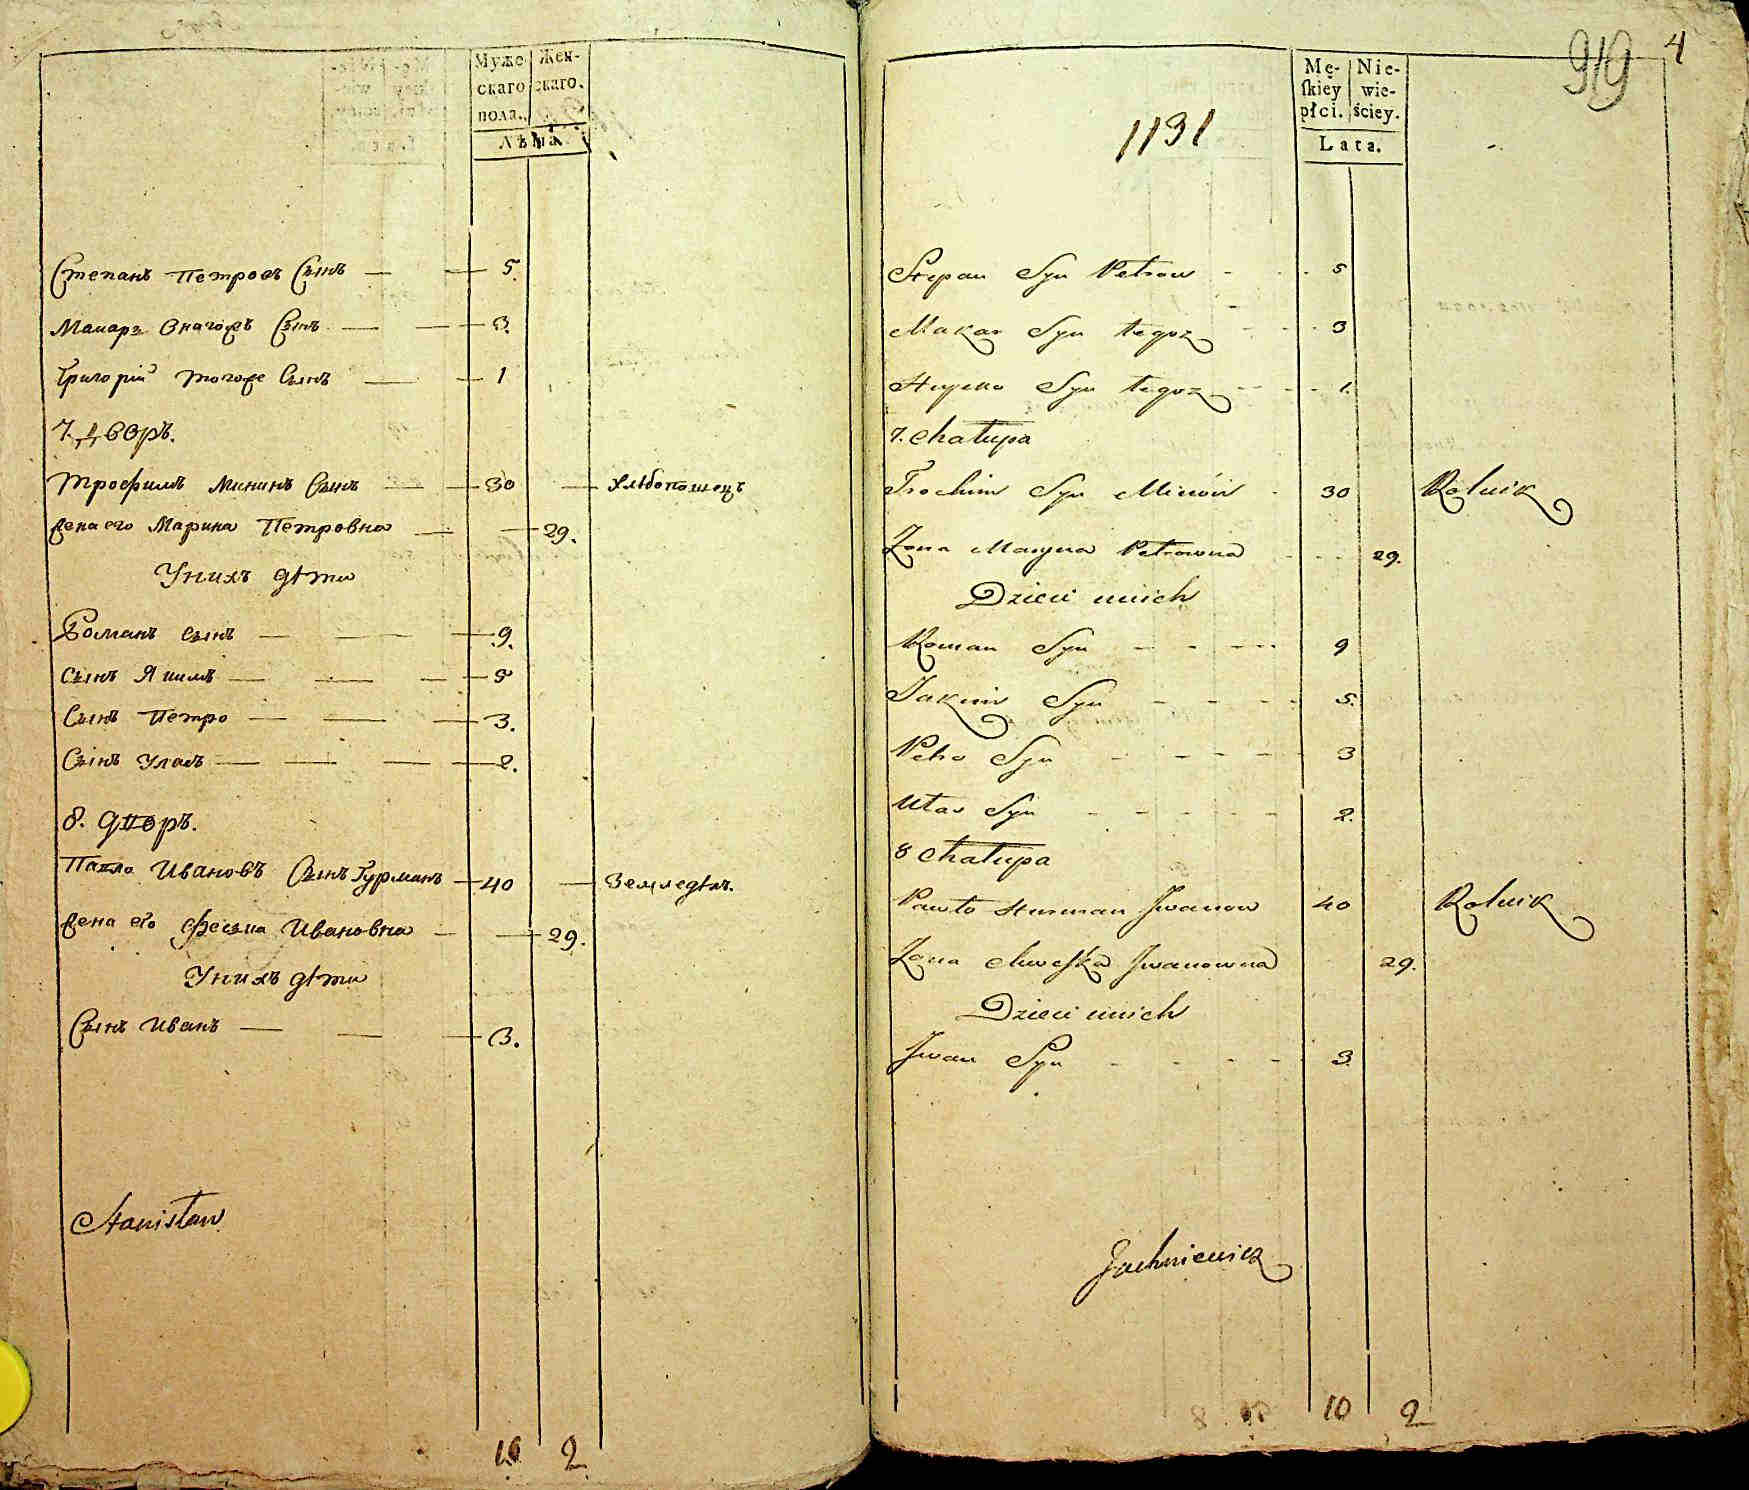 Муже Жен-
скаго скаго.
пола.
Лѣта.
Степанъ Петровъ Сынъ 5.
Макаръ Онагожъ Сынъ 3.
Григорій тогоже Сынъ 1
7. Дворъ.
Трофимъ Мининъ Сынъ 30 Хлѣбопашецъ
Жена его Марина Петровна 29.
Унихъ дѣти
Романъ сынъ 9.
Сынъ Якимъ 5
Сынъ Петро 3.
Сынъ Уласъ 2.
8. дворъ.
Павло Ивановъ Сынъ Гурманъ 40 Земледѣл.
Жена его Ивановна 29.
Унихъ дѣти
Сынъ Иванъ 3.
Stanisław
10 2
919 4
Mę- Nie-
ſkiey wie-
płci. ściey.
Lata.
1131
Stepan Syn Petrow 5
Makar Syn tegoż 3
Hryćko Syn tegoż 1.
7. Chałupa
Trochim Syn Minów 30 Rolnik
Zona Maryna Petrowna 29.
Dzieci unich
Roman Syn 9
Jakim Syn 5.
Petro Syn 3
Ułas Syn 2.
8 Chałupa
Pawło Hurman Jwanow 40 Rolnik
Zona Chweſka Jwanowna 29.
Dzieci unich
Jwan Syn 3
Jachniewicz
10 2